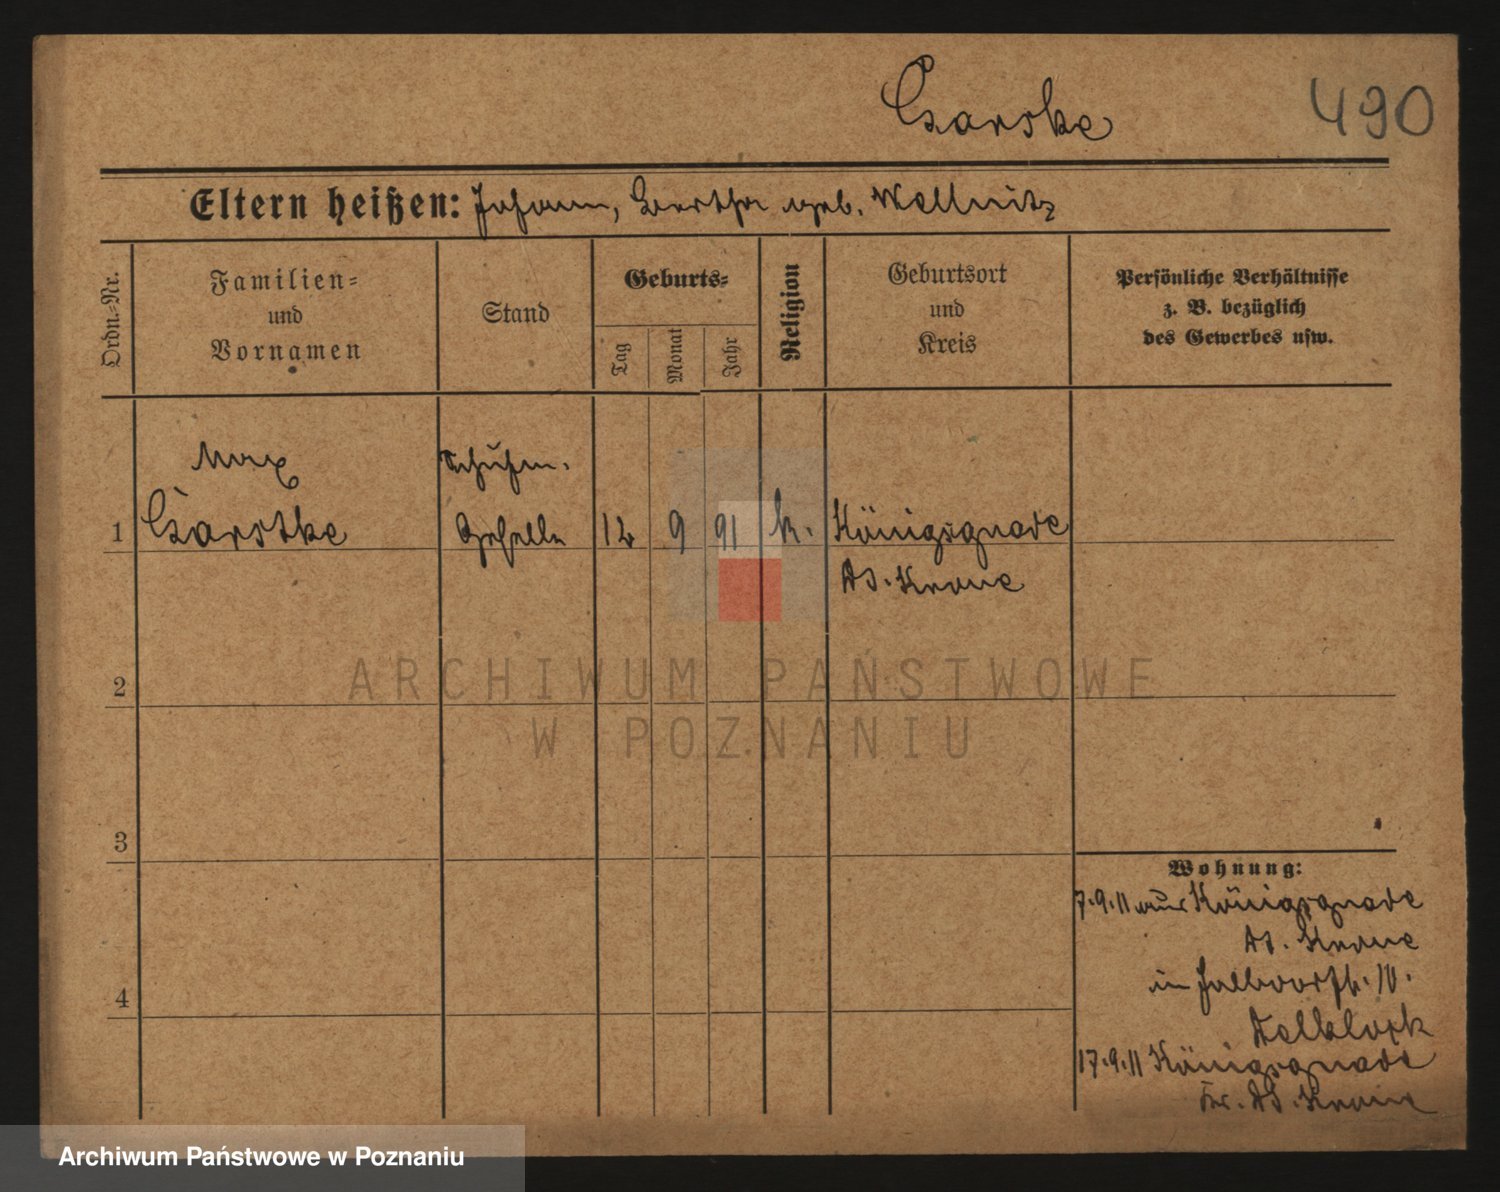 Czarske
490
Eltern heißen: Johann, Bertha geb. Wellnitz
Ordn.-Nr.
Familien-
und
Vornamen
Stand
Geburts-
Tag
Monat
Jahr
Religion
Geburtsort
und
Kreis
Persönliche Verhältnisse
z. B. bezüglich
des Gewerbes usw.
Max
Schuhm.
1 Czarstke Geselle 12 9 91 k. Königsgnade
Dt. Krone
2
3
4
Wohnung:
7.9.11 aus Königsgnade
Dt. Krone
in Halbdorfstr. 10.
17.9.11 Königsgnade
Kr. Dt. Krone
ARCHIWUM PAŃSTWOWE
W POZNANIU
Archiwum Państwowe w Poznaniu